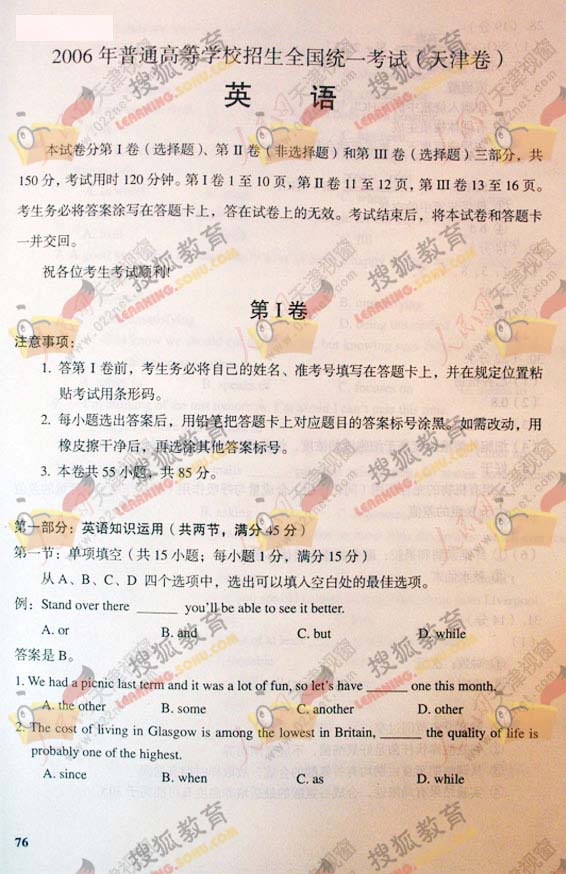 2006 年普通高等学校招生全国统一考试（天津卷）
英 语
本试卷分第 I 卷（选择题）、第 II 卷（非选择题）和第 III 卷（选择题）三部分，共
150 分，考试用时 120 分钟。第 I 卷 1 至 10 页，第 II 卷 11 至 12 页，第 III 卷 13 至 16 页。
考生务必将答案涂写在答题卡上，答在试卷上的无效。考试结束后，将本试卷和答题卡
一并交回。
祝各位考生考试顺利！
第 I 卷
注意事项：
1. 答第 I 卷前，考生务必将自己的姓名、准考号填写在答题卡上，并在规定位置粘
贴考试用条形码。
2. 每小题选出答案后，用铅笔把答题卡上对应题目的答案标号涂黑。如需改动，用
橡皮擦干净后，再选涂其他答案标号。
3. 本卷共 55 小题，共 85 分。
第一部分：英语知识运用（共两节，满分 45 分）
第一节：单项填空（共 15 小题；每小题 1 分，满分 15 分）
从 A、B、C、D 四个选项中，选出可以填入空白处的最佳选项。
例：Stand over there ______ you'll be able to see it better.
A. or B. and C. but D. while
答案是 B。
1. We had a picnic last term and it was a lot of fun, so let's have ______ one this month.
A. the other B. some C. another D. other
2. The cost of living in Glasgow is among the lowest in Britain, ______ the quality of life is
probably one of the highest.
A. since B. when C. as D. while
76
搜狐教育
LEARNING.SOHU.COM
人民网天津视窗
www.022net.com